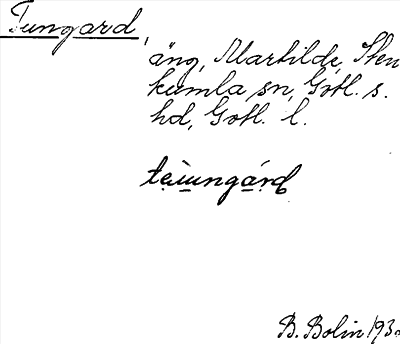 Tungard,
äng, Martilde, Sten
kumla sn, Gotl. s.
hd, Gotl. l.
B. Bolin 193